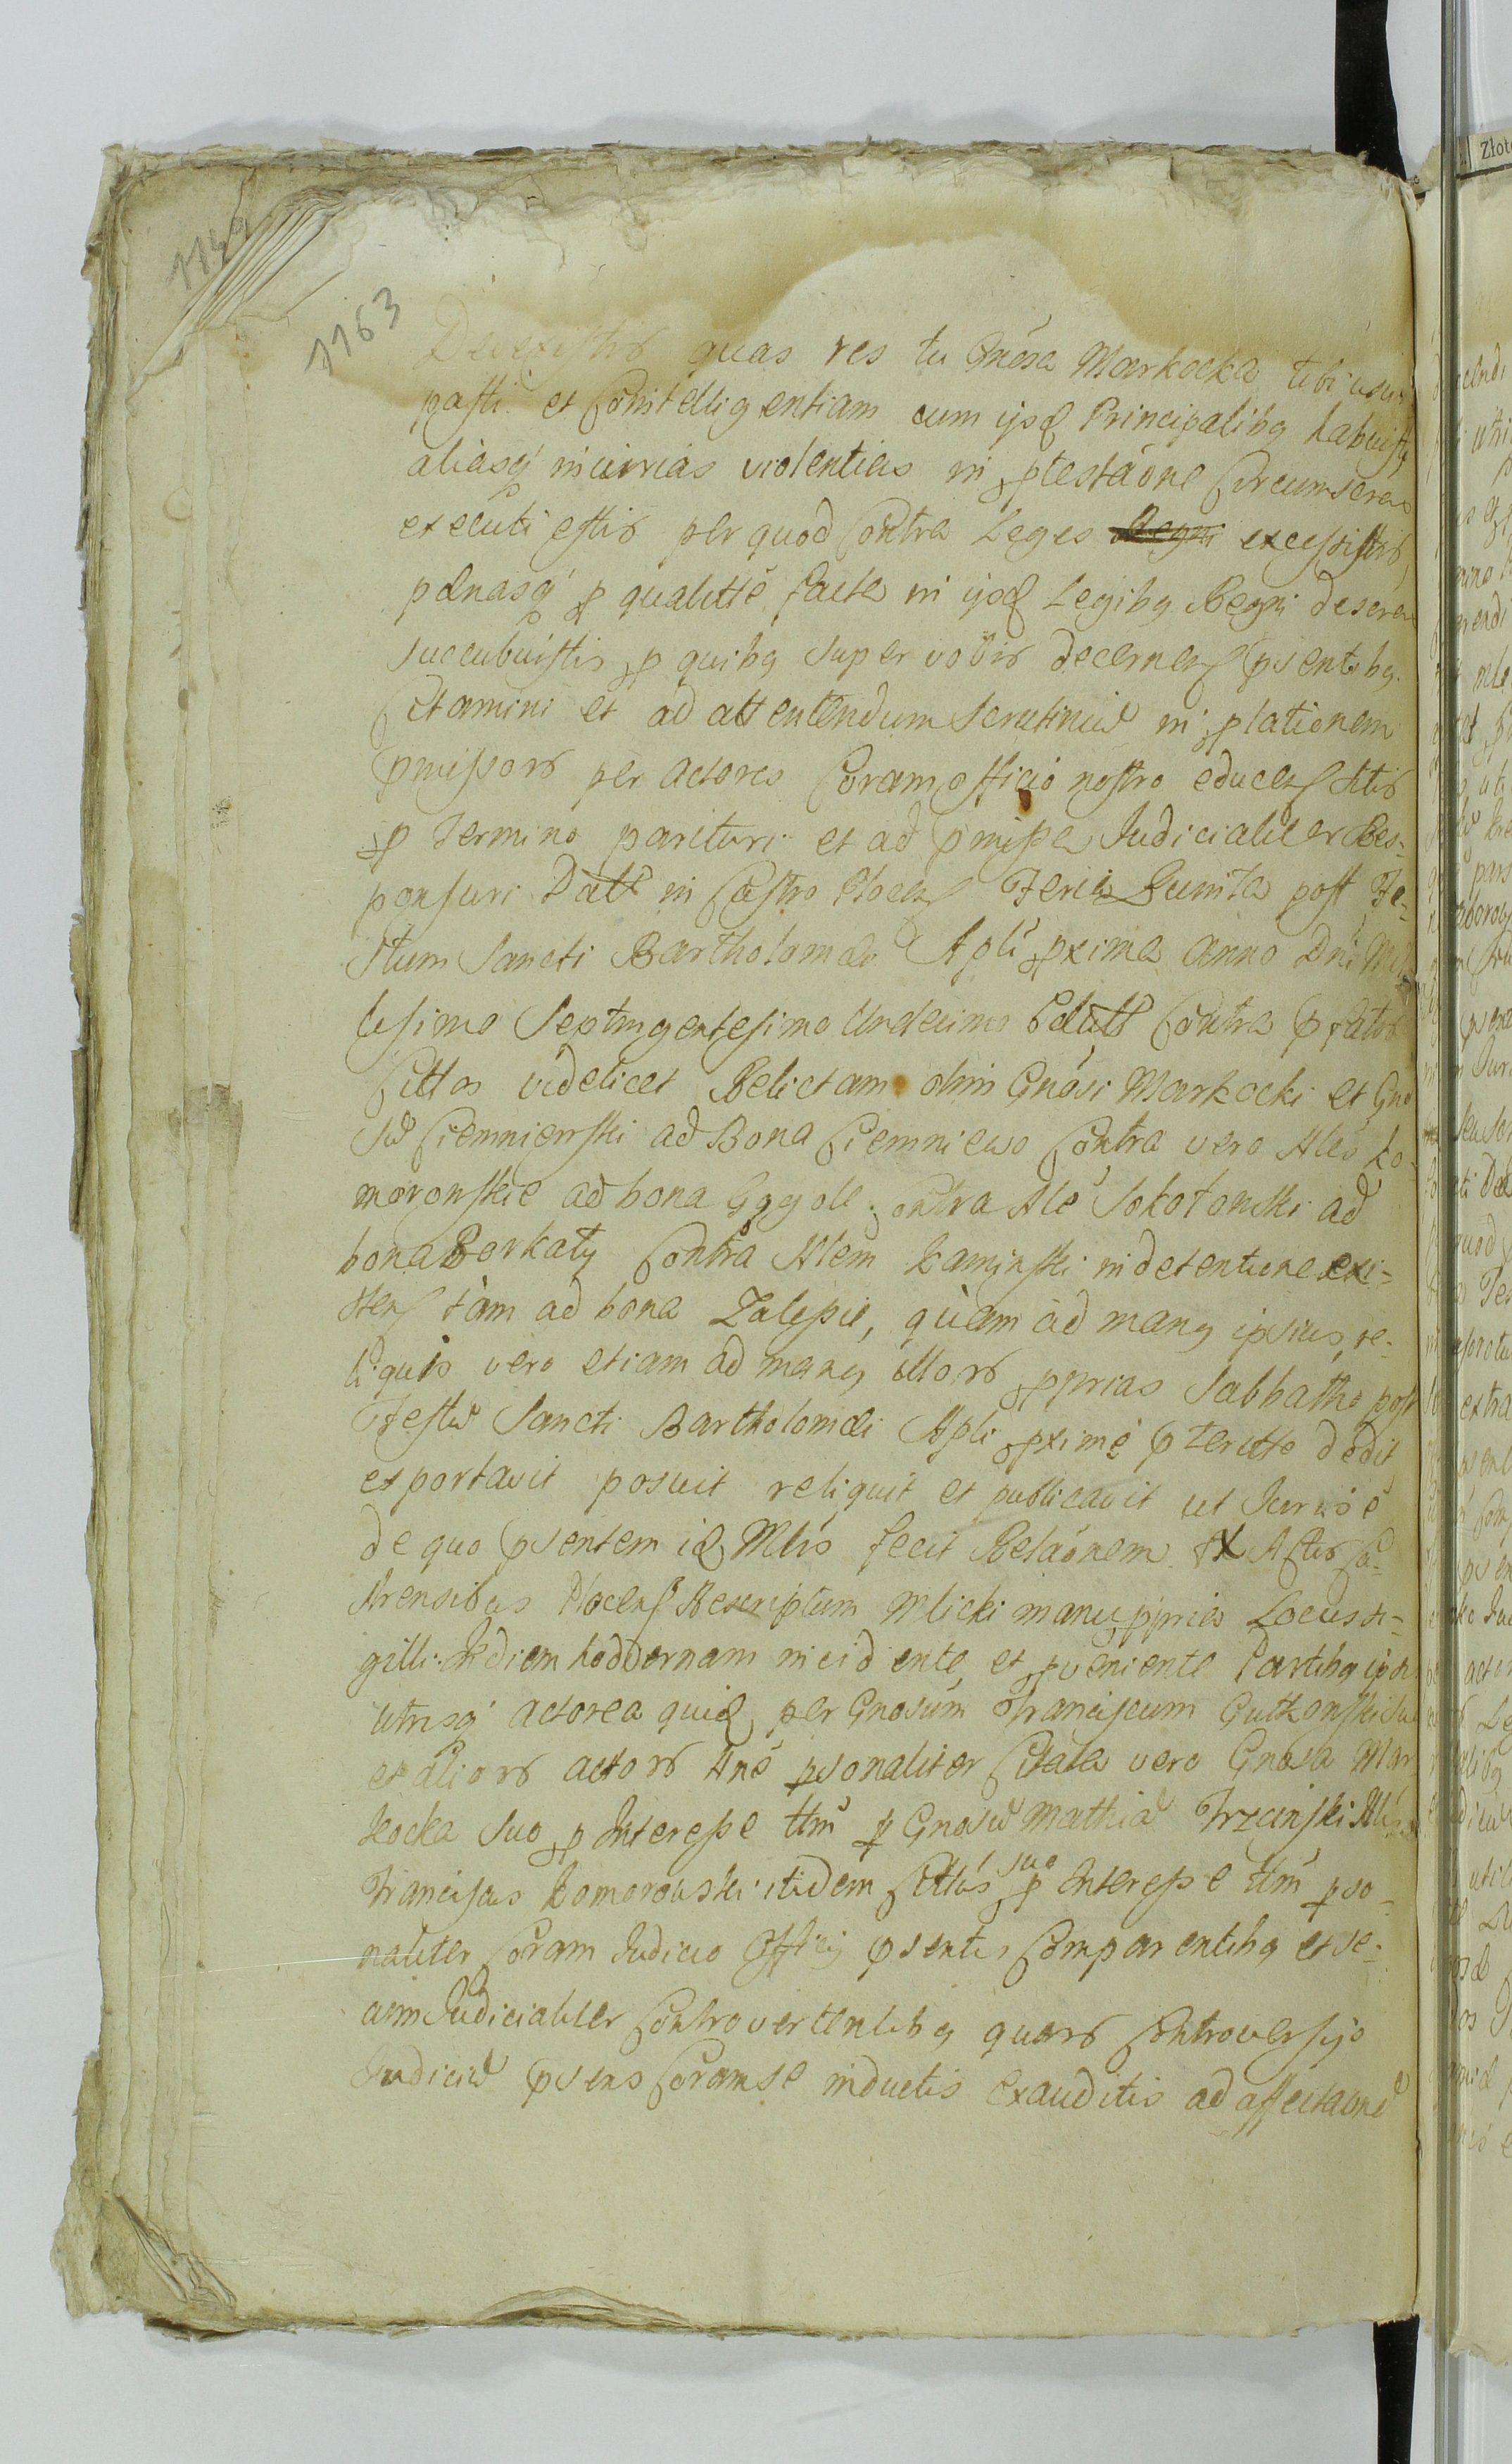 1163
quas res tu Gnósa Markocka tibi usur
pasti et Cointelligentiam cum ijsd Principalibq habuisti
aliasq iniurias violentias in ptestaóne Circumscrip
executi estis per quod Contra Leges Regni excessistis,
pænasq p qualitte facti in ijsd Legibq Regni descrip
succubuistis p quibq super vobis decernen psentibq
Citamini et ad attentendum Scrutiniu in plationem
pmissors per Actores Coram officio nostro educen Sitis
p Termino parituri et ad pmissa Judicialiter Res-
ponsuri Datt in Castro Plocen Feria Quinta post Fe-
stum Sancti Bartholomæi Apli pxima Anno Dni Mil
lesimo Septingentesimo Undecimo Relatt Contra pfatos
Cittos videlicet Relictam olim Gnósi Markocki et Gno
su Ciemniewski ad Bona Ciemniewo Contra vero Nles Ko-
morowskie ad bona Contra Nle Sokołowski ad
bona Contra Nlem Kaminski in detentione exi-
sten tàm ad bona Zalesie, quàm ad manq ipsius, re-
liquis vero etiam ad manq illors pprias Sabbatho post
Festu Sancti Bartholomæi Apli pxime pteritto dedit
exportavit posuit reliquit et publicavit ut Juris é
de quo psentem id Mlis fecit Relaónem Ex Actis Ca-
strensibus Plocen Rescriptum Mlicki manu ppria Locus si-
gilli. In diem hodiernam incidente et pveniente Partibq ipsis
utrisq actorea quid per Gnosúm Franciscum Gutkowski suo
et aliors actors Nne psonaliter Citata vero Gnosa Mar
kocka suo p Interesse ttm p Gnosu Mathia Trzcinski Nlis
Franciscus Komorowski itidem Cittús suo p Interesse ttm pso-
naliter Coram Judicio Officij psentis Comparentibq et se-
cum Judicialiter Controvertentibq quors Controversijs
Judiciu psens Coram se inductis exauditis ad affectaóne